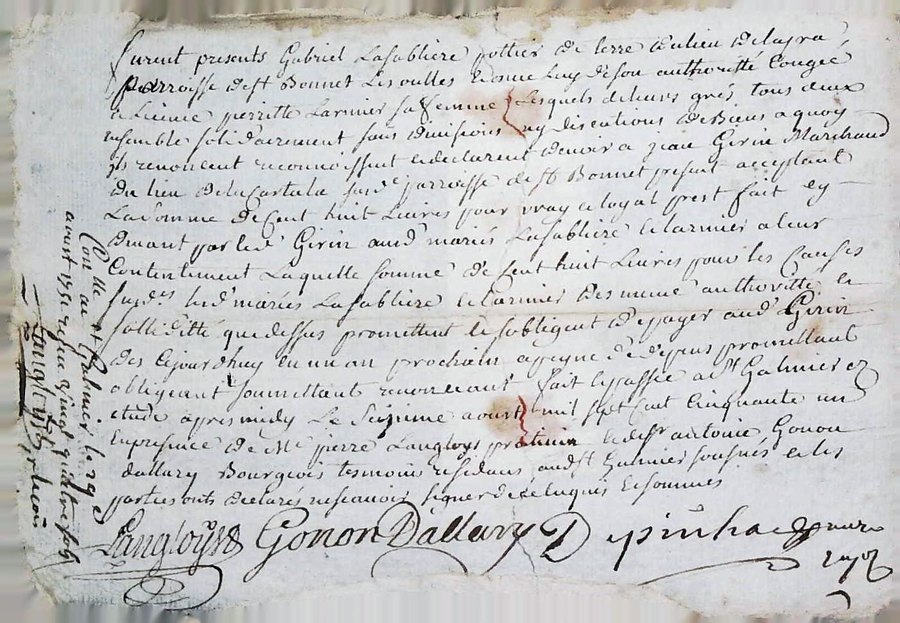 furent presents Gabriel Lasabliere pottier de terre du lieu de lapra
parroisse de st Bonnet les oulles et sous luy de son authoritté congée
et licence pierritte Larmier sa femme lesquels de leurs grés tous deux
ensemble solidairement sans division ny discutions de Biens a quoy
ils renoncent reconnoissent et declarent devoir a jean Girin Marchand
du lieu de la susd.e parroisse de st Bonnet present acceptant
La somme de Cent huit Livres pour vray et loyal prest fait cy
devant par led. Girin aud. mariés Lasabliere et larmier a leur
Contentement Laquelle somme de Cent huit Livres pour les Causes
susd.es lesd. mariés Lasabliere et Larmier de mesme authoritté et
solliditté que dessus promettent et sobligent de payer aud. Girin
des cejourdhuy en un an prochain a peyne de depens promettant
obligeant soumettant renonceant fait et passé a st Galmier
etude apres midy Le aoust mil sept cent cinquante un
En presence de Me pierre Langloys praticien et de sr antoine Gonon
dallary Bourgeois tesmoins residans aud. st Galmier soussnés et les
parties ont declarés ne scavoir signer de ce enquis et sommés
Langloys Gonon Dallary Depinhac
Con.lle a st Galmier le 
aoust 1751 reçeu
Langloys